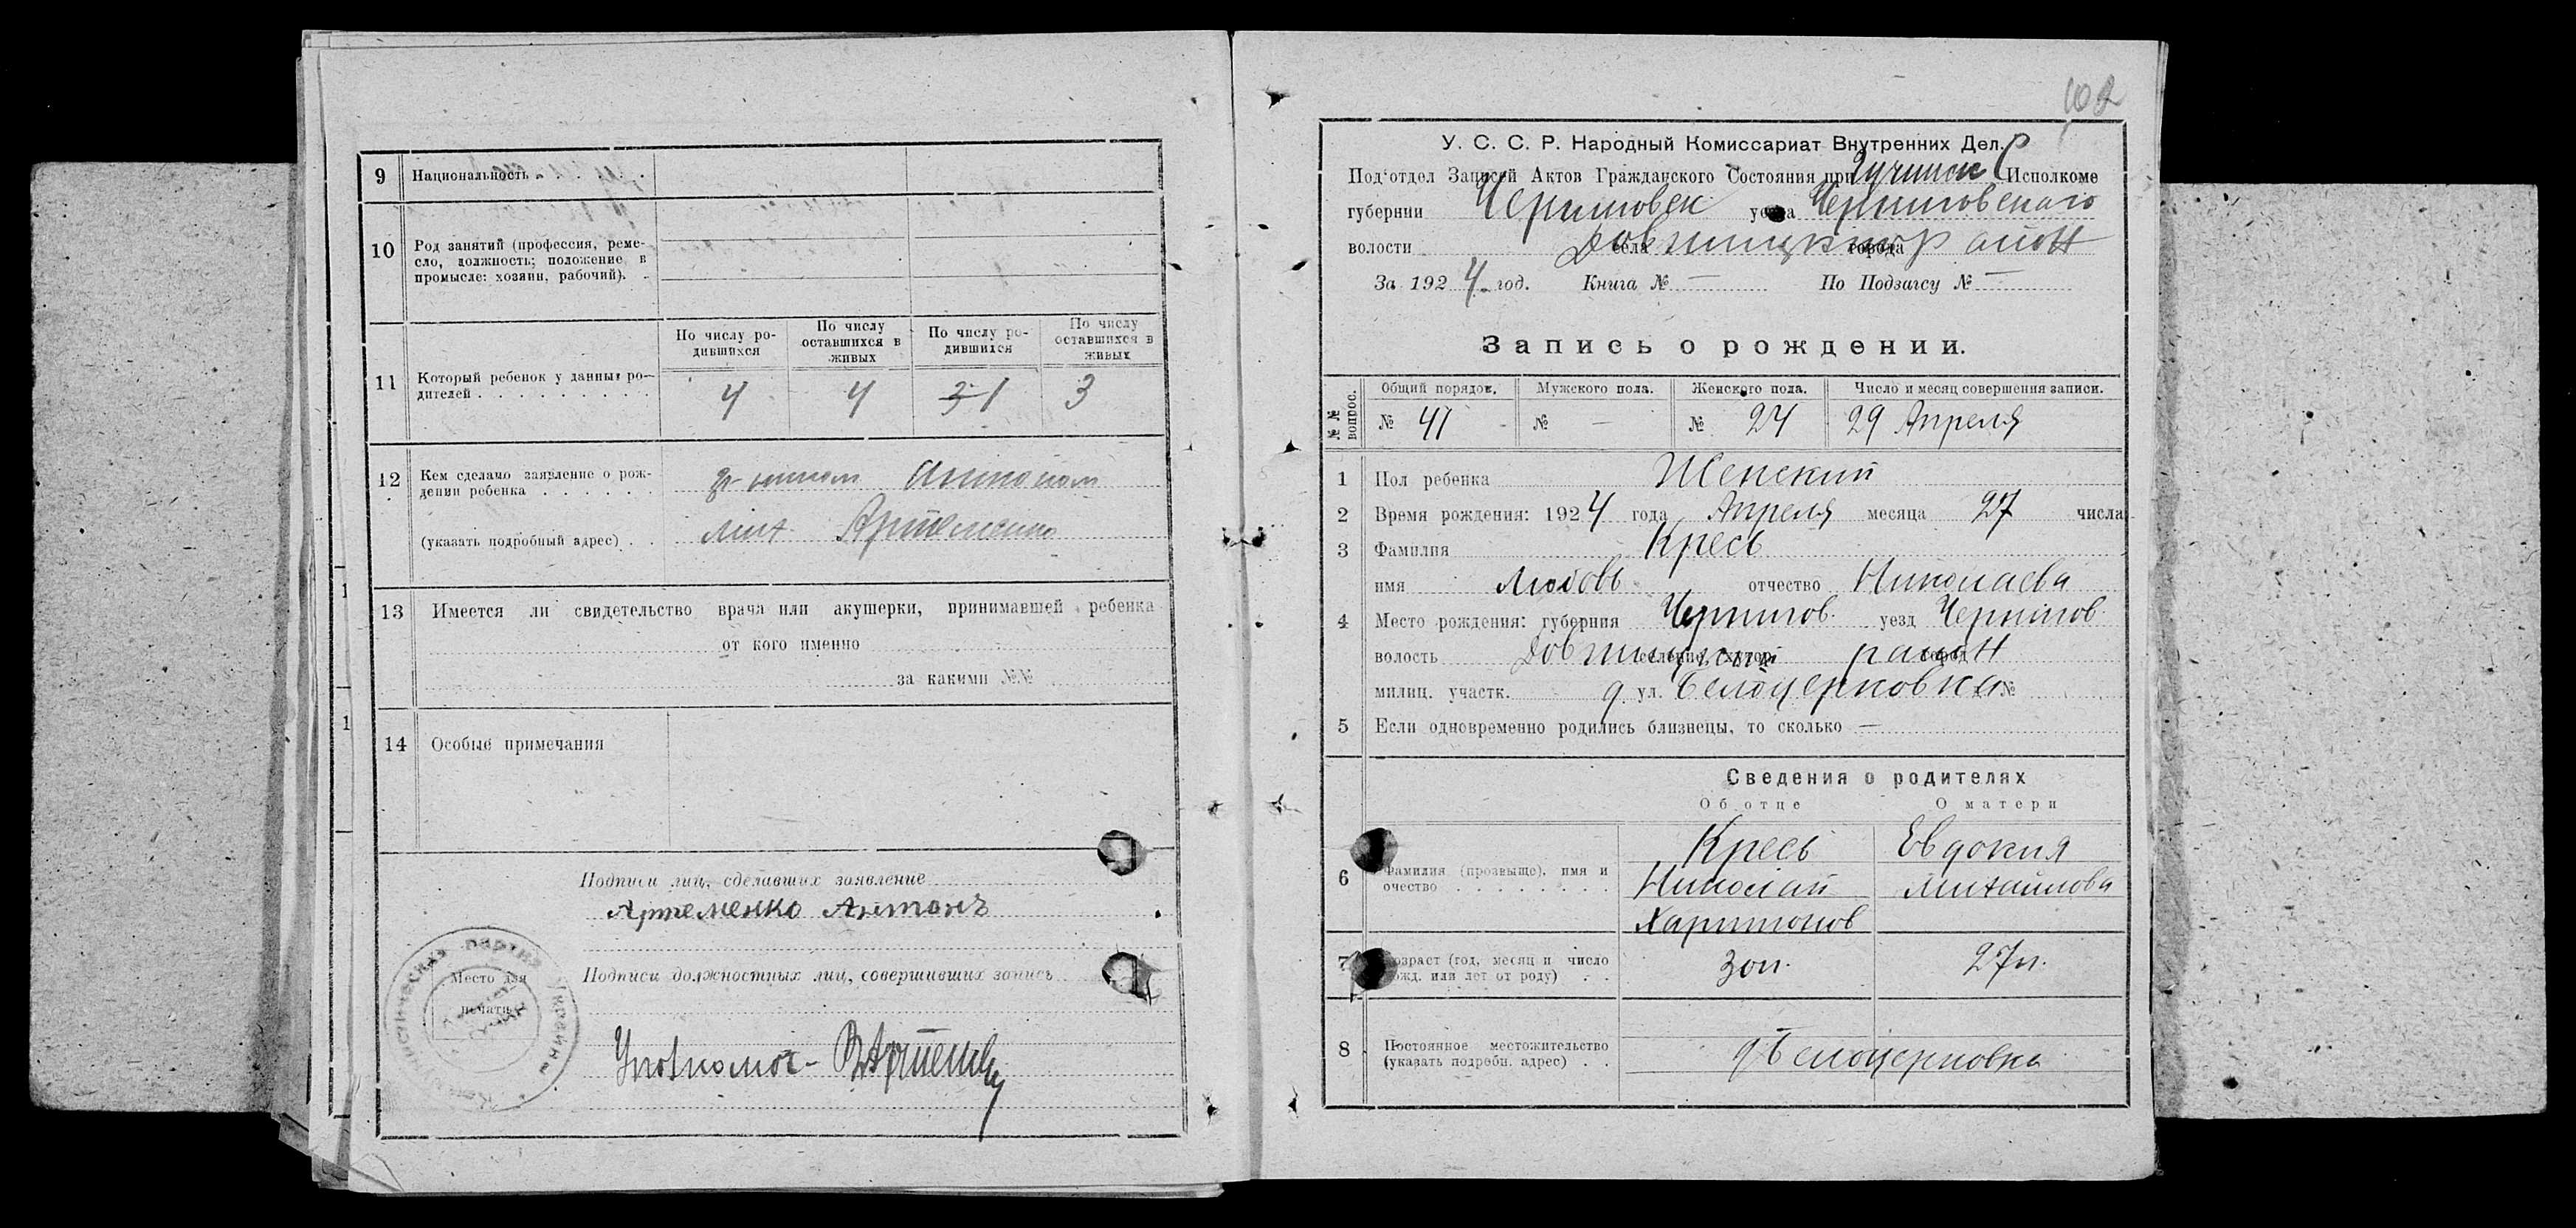 9 Национальность
10 Род занятий (профессия, реме-
сло, должность; положение в
промысле: хозяин, рабочий).
По числу ро-
дившихся
По числу
оставшихся в
живых
По числу ро-
дившихся
По числу
оставшихся в
живых
11 Который ребенок у данных ро-
дителей
4 4 3 1 3
12 Кем сделано заявление о рож-
дении ребенка Антоном
(указать подробный адрес) Мих Артеменко
13 Имеется ли свидетельство врача или акушерки, принимавшей ребенка
от кого именно
за какими №№
14 Особые примечания
Подписи лиц, сделавших заявление
Артеменко Антонъ
Место для
печати
Подписи должностных лиц, совершивших запись
102
У. С. С. Р. Народный Комиссариат Внутренних Дел.
Под'отдел Записей Актов Гражданского Состояния при Исполкоме
губернии Черниговск уезда Черниговского
волости села города район
За 1924 год. Книга № — По Подзагсу № —
Запись о рождении.
№ № вопрос.
Общий порядок. Мужского пола. Женского пола. Число и месяц совершения записи.
№ 41 № — № 24 29 Апреля
1 Пол ребенка Женский
2 Время рождения: 1924 года Апреля месяца 27 числа
3 Фамилия Кресь
имя Любовь отчество Николаева
4 Место рождения: губерния Чернигов. уезд Чернигов
волость район
милиц. участк. д. ул. Белоцерковка №
5 Если одновременно родились близнецы, то сколько —
Сведения о родителях
Об отце О матери
6 Фамилия (прозвище), имя и
очество
Кресь
Николай
Харитонов
Евдокия
Михайлова
7 Возраст (год, месяц и число
рожд. или лет от роду)
30л. 27л.
8 Постоянное местожительство
(указать подробн. адрес)
д Белоцерковка